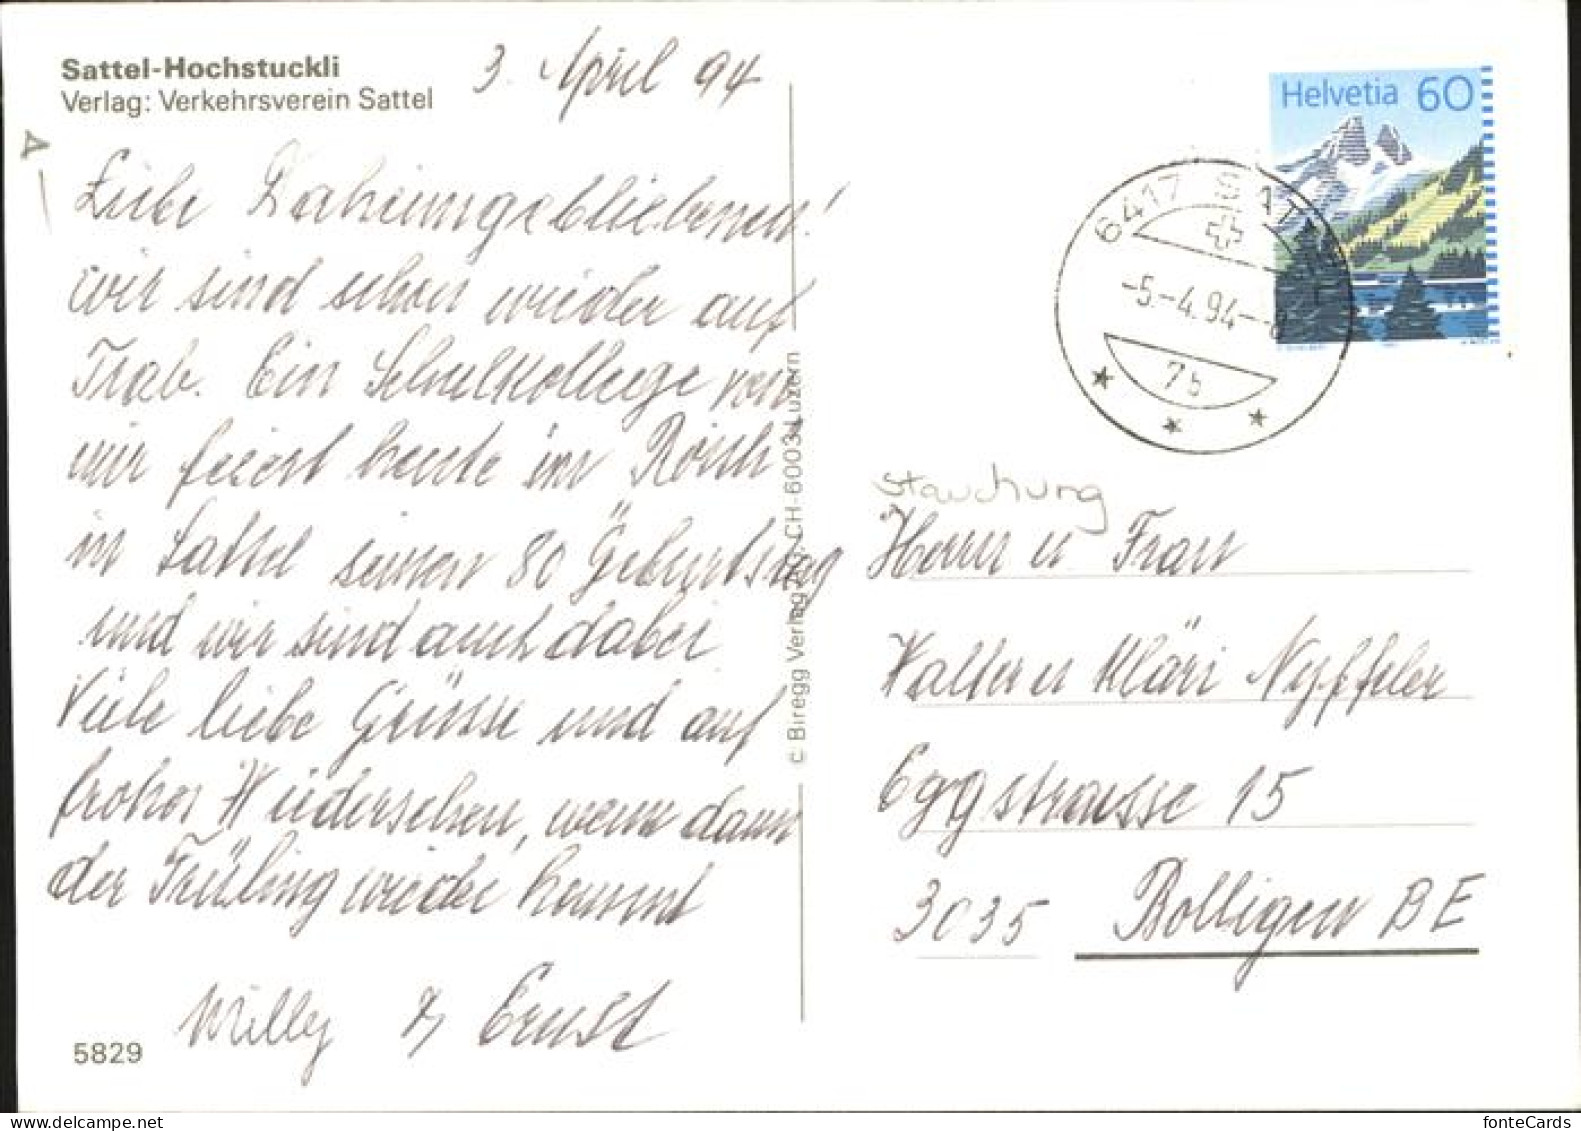 Sattel-Hochstuckli
Verlag: Verkehrsverein Sattel
3. April 94
Liebe Daheimgebliebenen!
wir sind schon wieder auf
Trab. Ein Schulkollege von
mir feiert heute im
in Sattel seinen 80 Geburtstag
und wir sind auch dabei
Viele liebe Grüsse und auf
frohes Wiedersehen, wenn dann
der Früling wieder kommt
Willy & Ernst
5829
c Biregg Verlag AG, CH-6003 Luzern
Helvetia 60
6417 SATTEL
-5.-4.94-
7b
Stauchung
Herrn u Frau
Walter u Kläri Nyffeler
Eggstrasse 15
3035 Bolligen BE
fonteCards